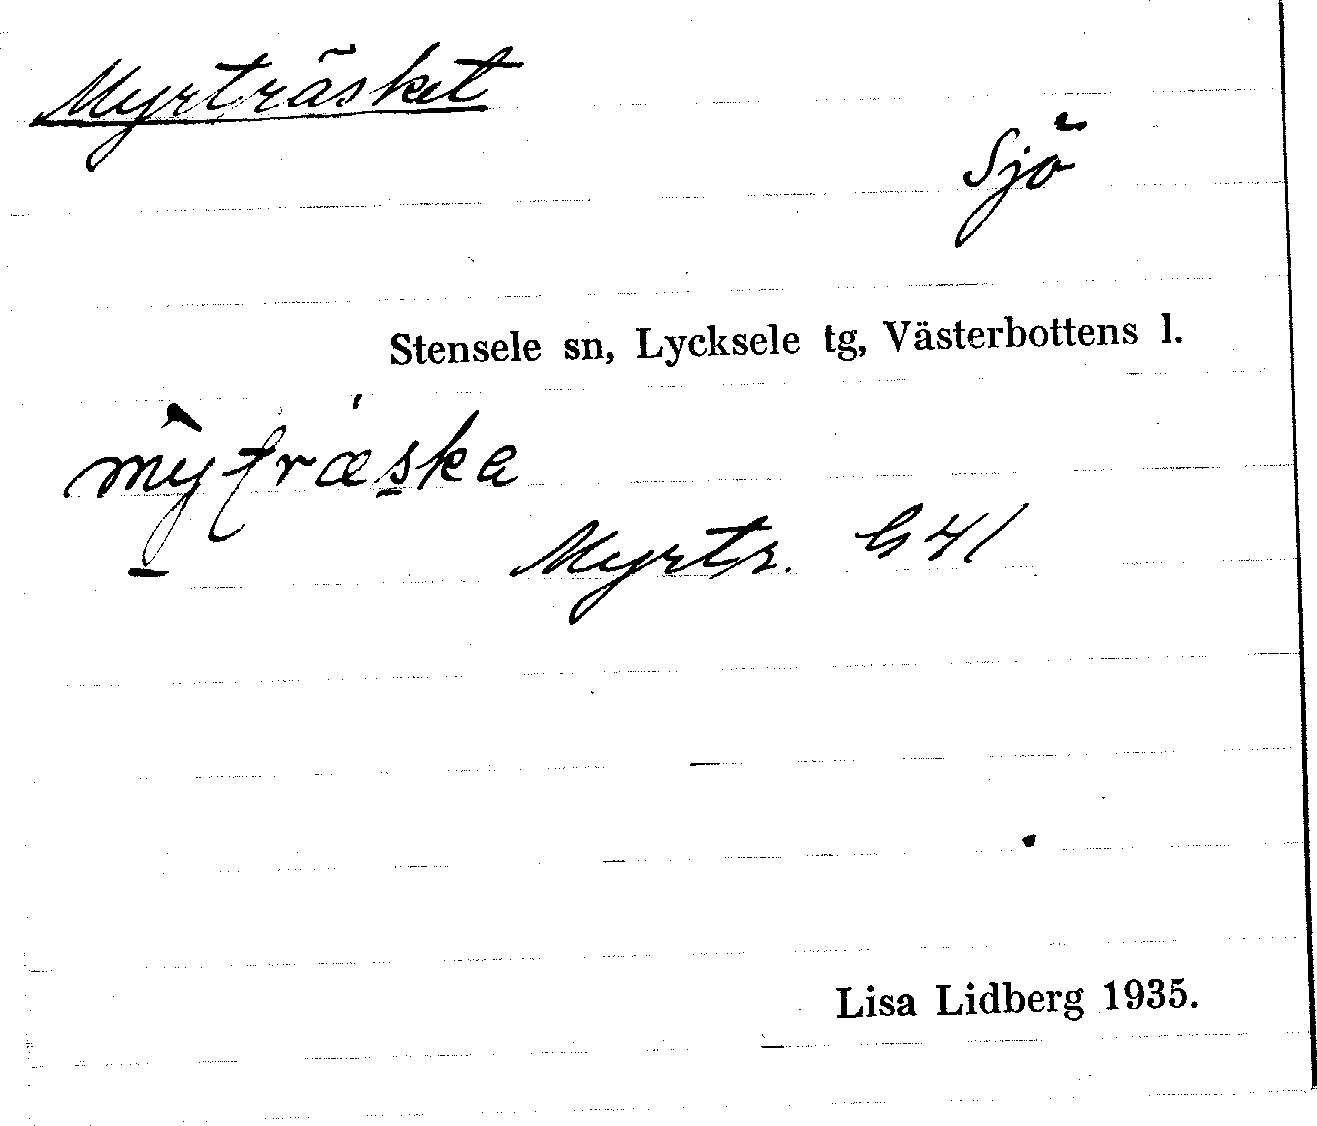 Myrträsket
Sjö
Stensele sn, Lycksele tg, Västerbottens l.
Myrtr. G 41
Lisa Lidberg 1935.